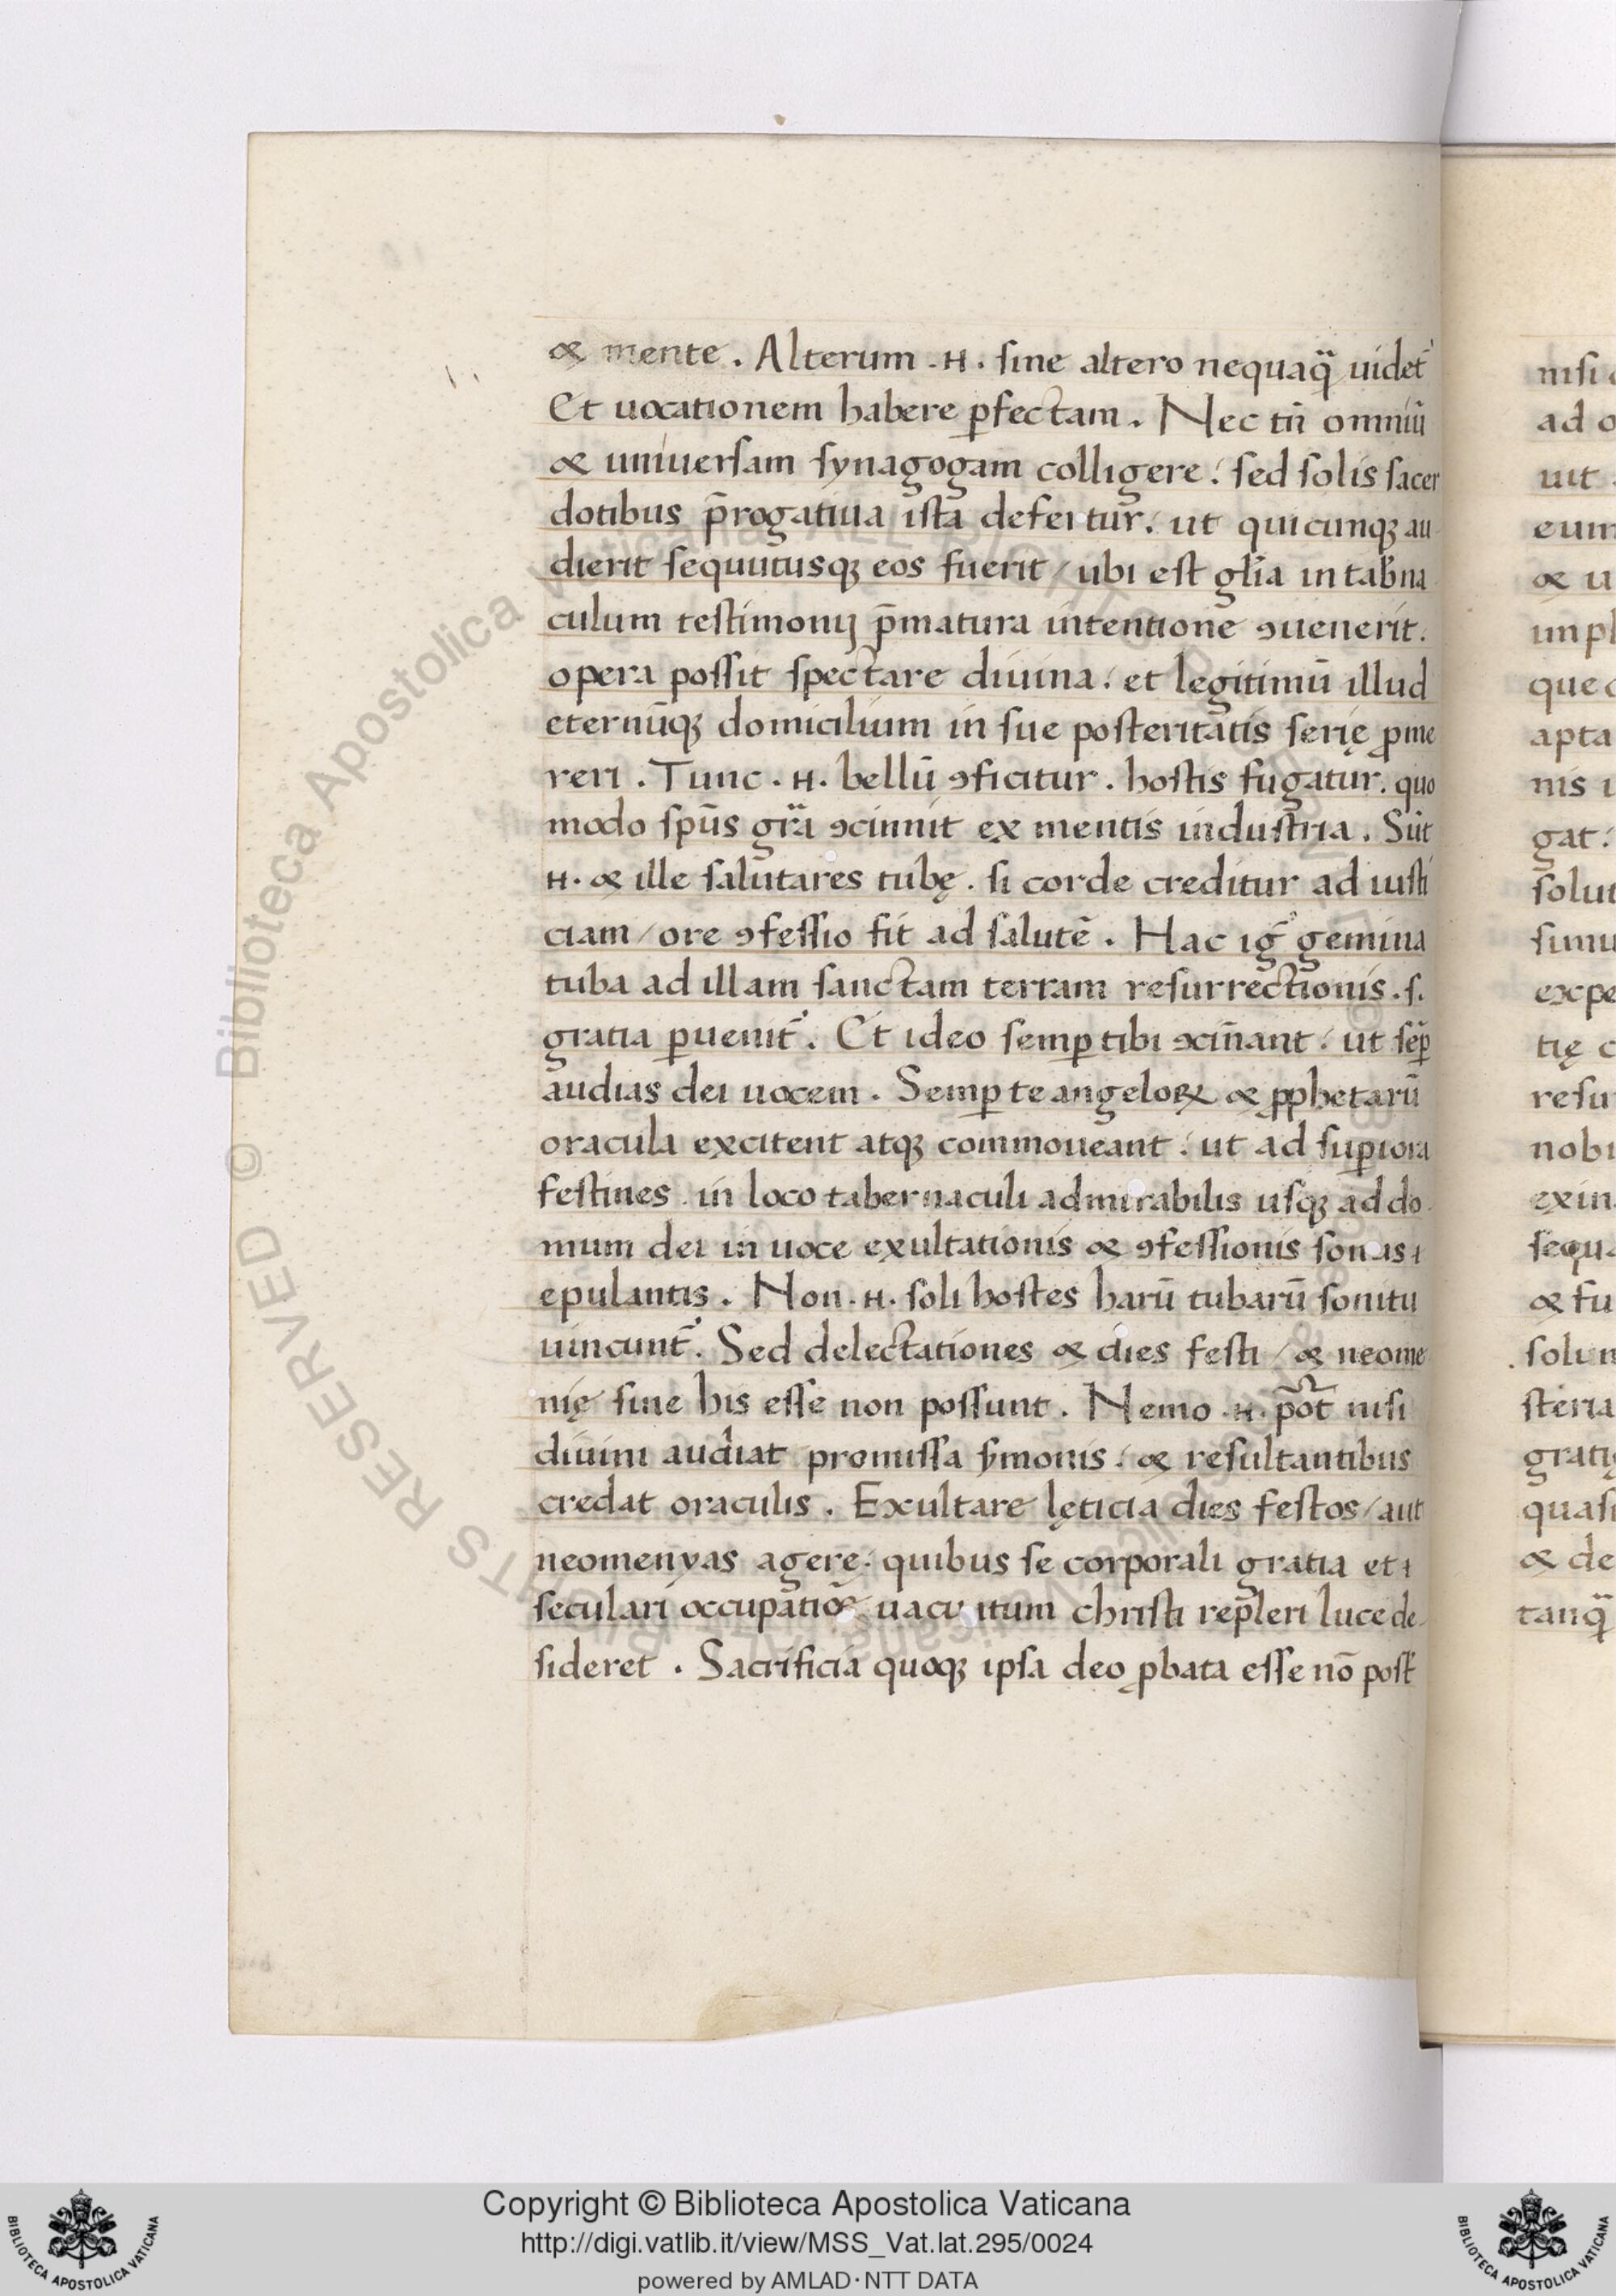 & mente . Alterum .H. sine altero nequaq̃ uidet᷑
Et uocationem habere ꝑfectam . Nec tn̄ omniū
& uniuersam synagogam colligere : sed solis sacer
dotibus p̄rogatiua ista defertur : ut quicunqꝫ au
dierit sequutusqꝫ eos fuerit / ubi est gl̄ia in tab̄na
culum testimonij p̄matura intentione ꝯuenerit .
opera possit spectare diuina : et legitimū illud
eternūqꝫ domicilium in sue posteritatis serię ꝓme
reri . Tunc .H. bellū ꝯficitur . hostis fugatur . quo
modo sp̄us gr̄a ꝯcinnit ex mentis industria . Sūt
.H. & ille salutares tubę . si corde creditur ad iusti
ciam / ore ꝯfessio fit ad salutē . Hac ig᷑ gemina
tuba ad illam sanctam terram resurrectionis .s.
gratia ꝑuenit᷑ . Et ideo semꝑ tibi ꝯcin̄ant : ut sēꝑ
audias dei uocem . Semꝑ te angeloꝝ & ꝓphetarū
oracula excitent atqꝫ commoueant : ut ad suꝑiora
festines in loco tabernaculi admirabilis usqꝫ ad do
mum dei in uoce exultationis & ꝯfessionis sonus
epulantis . Non .H. soli hostes harū tubarū sonitu
uincunt᷑ . Sed delectationes & dies festi / & neome
nię sine his esse non possunt . Nemo .H. pōt nisi
diuini audiat promissa s̄monis : & resultantibus
credat oraculis . Exultare lęticia dies festos / aut
neomenyas agere : quibus se corporali gratia et
seculari occupatiōe uacuitum christi rep̄leri luce de
sideret . Sacrificia quoqꝫ ipsa deo ꝓbata esse nō post᷑
nisi
ad o
uit
eum
& u
impl
que
apta
nis
gat :
solut
simu
expe
tię
resu
nobi
exin
sequ
& fu
solum
steria
grati
quasi
& de
tanq̃
© Biblioteca Apostolica Vaticana ALL RIGHTS RESERVED
Copyright © Biblioteca Apostolica Vaticana
http://digi.vatlib.it/view/MSS_Vat.lat.295/0024
powered by AMLAD·NTT DATA
BIBLIOTECA APOSTOLICA VATICANA
BIBLIOTECA APOSTOLICA VATICANA